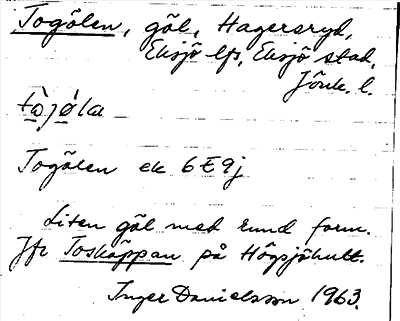 Togölen, göl, Hagersryd,
Eksjö lfs, Eksjö stad,
Jönk. l.
tò̀jǿla
Togölen ek 6E9j
Liten göl med rund form.
Jfr Toskäppan på Högsjöhult.
Inger Danielsson 1963.